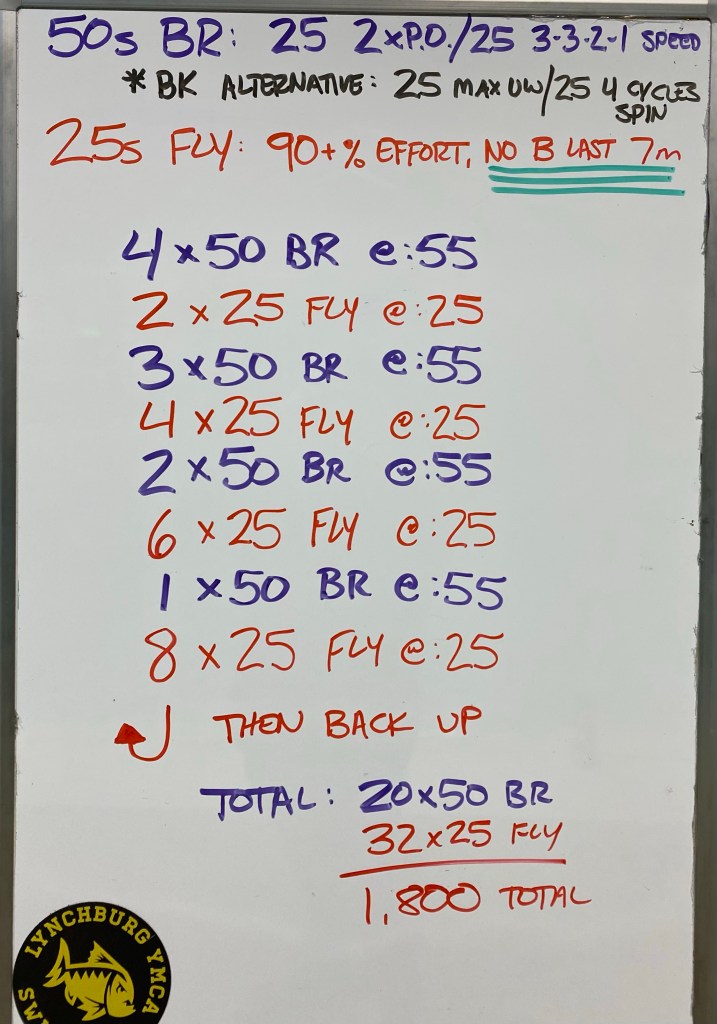 50s BR: 25 2xP.O./25 3-3-2-1 SPEED
* BK ALTERNATIVE: 25 MAX UW/25 4 CYCLES
SPIN
25s FLY: 90+% EFFORT, NO B LAST 7m
4 x 50 BR @ :55
2 x 25 FLY @ :25
3 x 50 BR @ :55
4 x 25 FLY @ :25
2 x 50 BR @ :55
6 x 25 FLY @ :25
1 x 50 BR @ :55
8 x 25 FLY @ :25
THEN BACK UP
TOTAL: 20x50 BR
32x25 FLY
1,800 TOTAL
LYNCHBURG YMCA